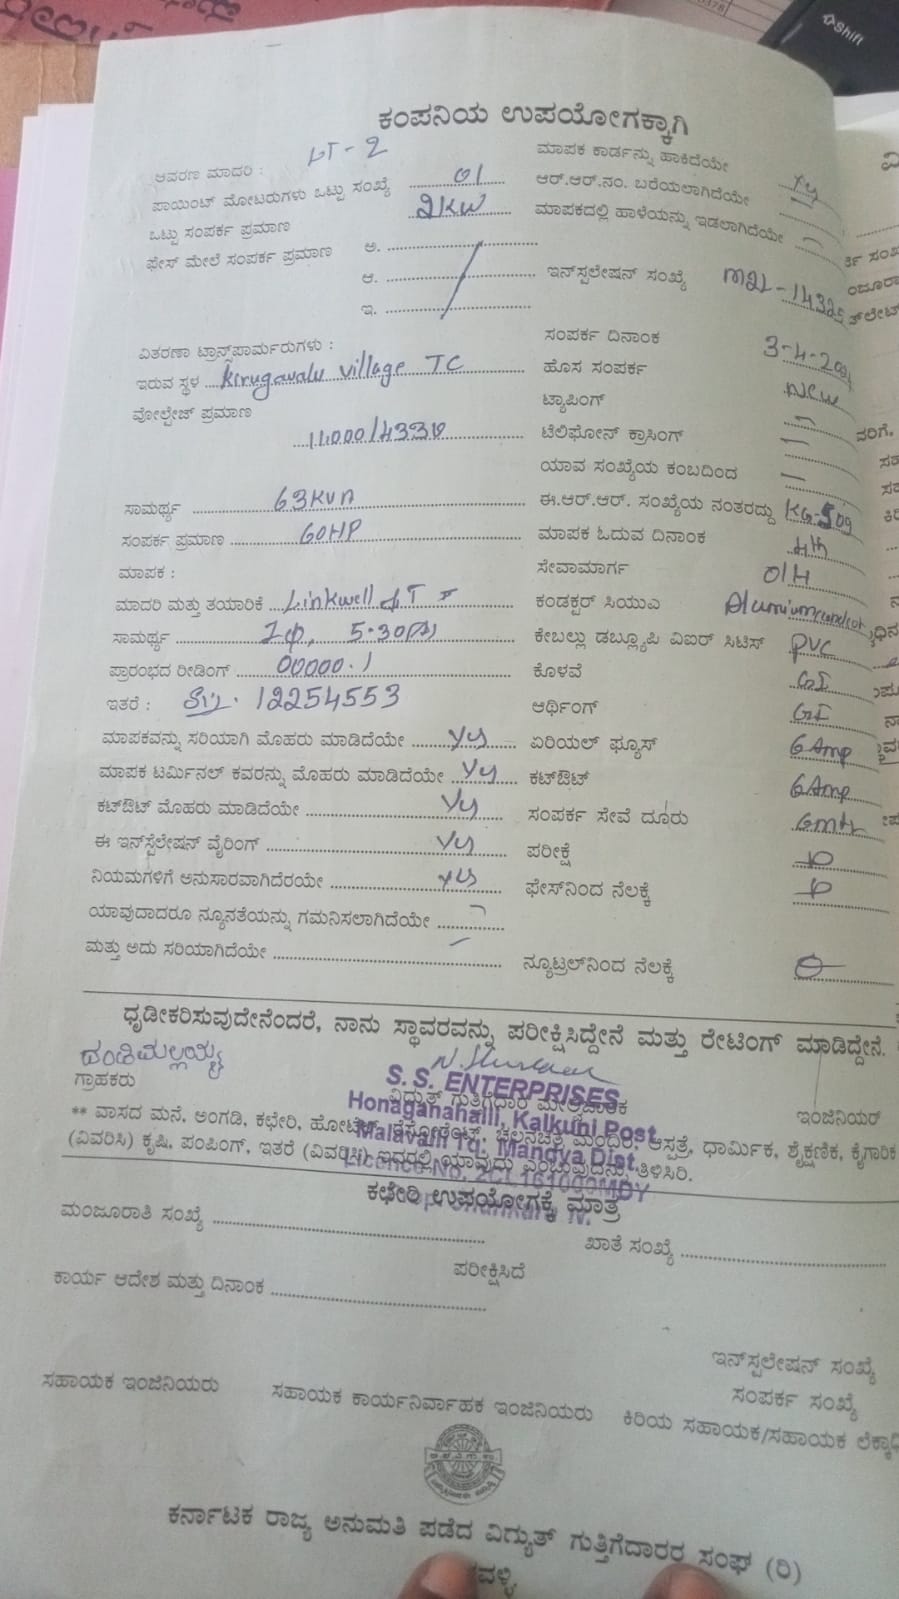 Shift
ಕಂಪನಿಯ ಉಪಯೋಗಕ್ಕಾಗಿ
ಆವರಣ ಮಾದರಿ : LT - 2 ಮಾಪಕ ಕಾರ್ಡನ್ನು ಹಾಕಿದೆಯೇ
ಪಾಯಿಂಟ್ ಮೋಟರುಗಳು ಒಟ್ಟು ಸಂಖ್ಯೆ 01 ಆರ್.ಆರ್.ನಂ. ಬರೆಯಲಾಗಿದೆಯೇ
ಒಟ್ಟು ಸಂಪರ್ಕ ಪ್ರಮಾಣ 2KW ಮಾಪಕದಲ್ಲಿ ಹಾಳೆಯನ್ನು ಇಡಲಾಗಿದೆಯೇ
ಫೇಸ್ ಮೇಲೆ ಸಂಪರ್ಕ ಪ್ರಮಾಣ ಅ.
ಆ. ಇನ್‌ಸ್ಪಲೇಷನ್ ಸಂಖ್ಯೆ
ಇ.
ವಿತರಣಾ ಟ್ರಾನ್ಸ್‌ಪಾರ್ಮರುಗಳು : ಸಂಪರ್ಕ ದಿನಾಂಕ
ಇರುವ ಸ್ಥಳ Kirugavalu village TC ಹೊಸ ಸಂಪರ್ಕ New
ವೋಲ್ಟೇಜ್ ಪ್ರಮಾಣ ಟ್ಯಾಪಿಂಗ್ -
ಟೆಲಿಫೋನ್ ಕ್ರಾಸಿಂಗ್ -
ಯಾವ ಸಂಖ್ಯೆಯ ಕಂಬದಿಂದ -
ಸಾಮರ್ಥ್ಯ 63KVA ಈ.ಆರ್.ಆರ್. ಸಂಖ್ಯೆಯ ನಂತರದ್ದು
ಸಂಪರ್ಕ ಪ್ರಮಾಣ 60HP ಮಾಪಕ ಓದುವ ದಿನಾಂಕ 4th
ಮಾಪಕ : ಸೇವಾಮಾರ್ಗ O/H
ಮಾದರಿ ಮತ್ತು ತಯಾರಿಕೆ Linkwell ಕಂಡಕ್ಟರ್ ಸಿಯುಎ
ಸಾಮರ್ಥ್ಯ 1φ, 5-30(A) ಕೇಬಲ್ಲು ಡಬ್ಲ್ಯೂಪಿ ವಿಐರ್ ಸಿಟಿಸ್ PVC
ಪ್ರಾರಂಭದ ರೀಡಿಂಗ್ 00000.1 ಕೊಳವೆ GI
ಇತರೆ : 12254553 ಆರ್ಥಿಂಗ್ GI
ಮಾಪಕವನ್ನು ಸರಿಯಾಗಿ ಮೊಹರು ಮಾಡಿದೆಯೇ yes ಏರಿಯಲ್ ಫ್ಯೂಸ್ 6Amp
ಮಾಪಕ ಟರ್ಮಿನಲ್ ಕವರನ್ನು ಮೊಹರು ಮಾಡಿದೆಯೇ yes ಕಟ್‌ಔಟ್ 6Amp
ಕಟ್‌ಔಟ್ ಮೊಹರು ಮಾಡಿದೆಯೇ yes ಸಂಪರ್ಕ ಸೇವೆ ದೂರು 6mtr
ಈ ಇನ್‌ಸ್ಟಲೇಷನ್ ವೈರಿಂಗ್ yes ಪರೀಕ್ಷೆ
ನಿಯಮಗಳಿಗೆ ಅನುಸಾರವಾಗಿದೆರಯೇ yes ಫೇಸ್‌ನಿಂದ ನೆಲಕ್ಕೆ
ಯಾವುದಾದರೂ ನ್ಯೂನತೆಯನ್ನು ಗಮನಿಸಲಾಗಿದೆಯೇ
ಮತ್ತು ಅದು ಸರಿಯಾಗಿದೆಯೇ ನ್ಯೂಟ್ರಲ್‌ನಿಂದ ನೆಲಕ್ಕೆ
ಧೃಡೀಕರಿಸುವುದೇನೆಂದರೆ, ನಾನು ಸ್ಥಾವರವನ್ನು ಪರೀಕ್ಷಿಸಿದ್ದೇನೆ ಮತ್ತು ರೇಟಿಂಗ್ ಮಾಡಿದ್ದೇನೆ.
ಗ್ರಾಹಕರು ವಿದ್ಯುತ್ ಗುತ್ತಿಗೆದಾರ ಮೇಲ್ವಿಚಾರಕ ಇಂಜಿನಿಯರ್
S. S. ENTERPRISES
Honaganahalli, Kalkuni Post
Malavalli Tq. Mandya Dist.
** ವಾಸದ ಮನೆ, ಅಂಗಡಿ, ಕಛೇರಿ, ಹೋಟೆಲ್, ರೆಸ್ಟೋರೆಂಟ್, ಚಲನಚಿತ್ರ ಮಂದಿರ, ಆಸ್ಪತ್ರೆ, ಧಾರ್ಮಿಕ, ಶೈಕ್ಷಣಿಕ, ಕೈಗಾರಿಕ
(ವಿವರಿಸಿ) ಕೃಷಿ, ಪಂಪಿಂಗ್, ಇತರೆ (ವಿವರಿಸಿ) ಇದರಲ್ಲಿ ಯಾವುದು ಎಂಬುವುದನ್ನು ತಿಳಿಸಿರಿ.
ಕಛೇರಿ ಉಪಯೋಗಕ್ಕೆ ಮಾತ್ರ
ಮಂಜೂರಾತಿ ಸಂಖ್ಯೆ ಖಾತೆ ಸಂಖ್ಯೆ
ಪರೀಕ್ಷಿಸಿದೆ
ಕಾರ್ಯ ಆದೇಶ ಮತ್ತು ದಿನಾಂಕ
ಇನ್‌ಸ್ಪಲೇಷನ್ ಸಂಖ್ಯೆ
ಸಂಪರ್ಕ ಸಂಖ್ಯೆ
ಸಹಾಯಕ ಇಂಜಿನಿಯರು ಸಹಾಯಕ ಕಾರ್ಯನಿರ್ವಾಹಕ ಇಂಜಿನಿಯರು ಕಿರಿಯ ಸಹಾಯಕ/ಸಹಾಯಕ
ಕರ್ನಾಟಕ ರಾಜ್ಯ ಅನುಮತಿ ಪಡೆದ ವಿದ್ಯುತ್ ಗುತ್ತಿಗೆದಾರರ ಸಂಘ (ರಿ)